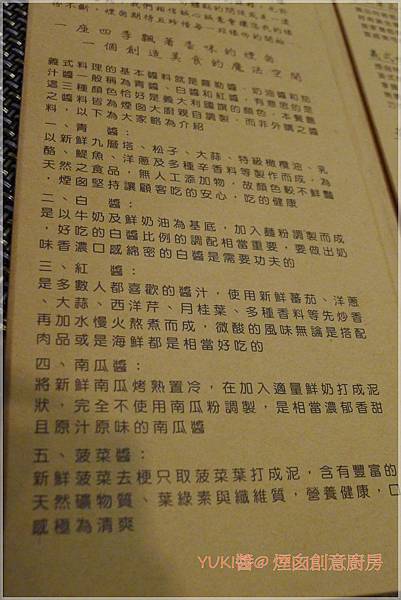 一座四季飄著香味的煙囪
一個創造美食的魔法空間
義式料理的基本醬料就是蘿勒醬、奶油醬和茄
汁醬一般稱為青醬、白醬和紅醬，有意思的是
這三種顏色恰好是義大利國旗的顏色，本餐廳
之醬料皆為煙囪大廚親自調製，而非外購之醬
料，以下為大家略為介紹
一、青　醬：
以新鮮九層塔、松子、大蒜、特級橄欖油、乳
酪、鯷魚、洋蔥及多種辛香料等製作而成，為
天然之食品，無人工添加物，故顏色較不鮮豔
，煙囪堅持讓顧客吃的安心，吃的健康
二、白　醬：
是以牛奶及鮮奶油為基底，加入麵粉調製而成
，好吃的白醬比例的調配相當重要，要做出奶
味香濃口感綿密的白醬是需要功夫的
三、紅　醬：
是多數人都喜歡的醬汁，使用新鮮蕃茄、洋蔥
、大蒜、西洋芹、月桂葉、多種香料等先炒香
再加水慢火熬煮而成，微酸的風味無論是搭配
肉品或是海鮮都是相當好吃的
四、南瓜醬：
將新鮮南瓜烤熟置冷，在加入適量鮮奶打成泥
狀，完全不使用南瓜粉調製，是相當濃郁香甜
且原汁原味的南瓜醬
五、菠菜醬：
新鮮菠菜去梗只取菠菜葉打成泥，含有豐富的
天然礦物質、葉綠素與纖維質，營養健康，口
感極為清爽
YUKI醬@煙囪創意廚房